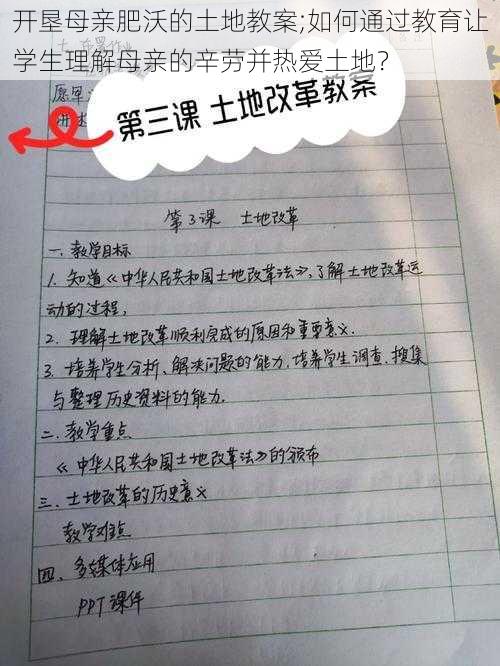 开垦母亲肥沃的土地教案;如何通过教育让
学生理解母亲的辛劳并热爱土地?
第三课 土地改革教案
第3课 土地改革
一、教学目标
1. 知道《中华人民共和国土地改革法》,了解土地改革运
动的过程,
2. 理解土地改革顺利完成的原因和重要意义.
3. 培养学生分析、解决问题的能力,培养学生调查、搜集
与整理历史资料的能力.
二、教学重点
《中华人民共和国土地改革法》的颁布
三、土地改革的历史意义
教学难点
四、多媒体应用
PPT课件